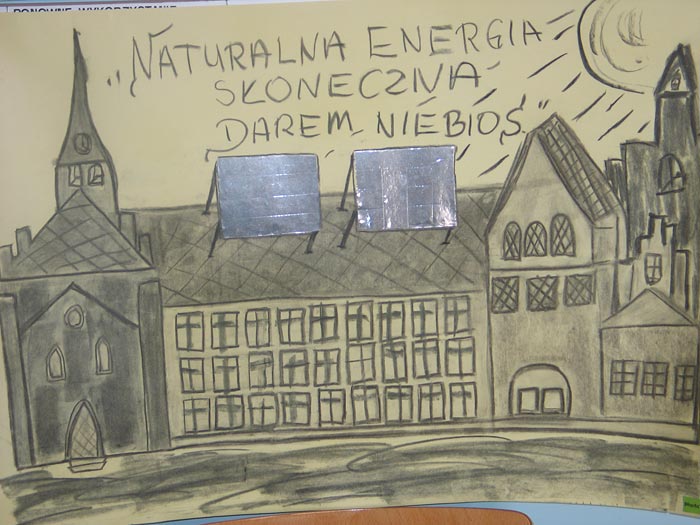 PONOWNE WYKORZYSTANIE
„NATURALNA ENERGIA
SŁONECZNA
DAREM NIEBIOS"